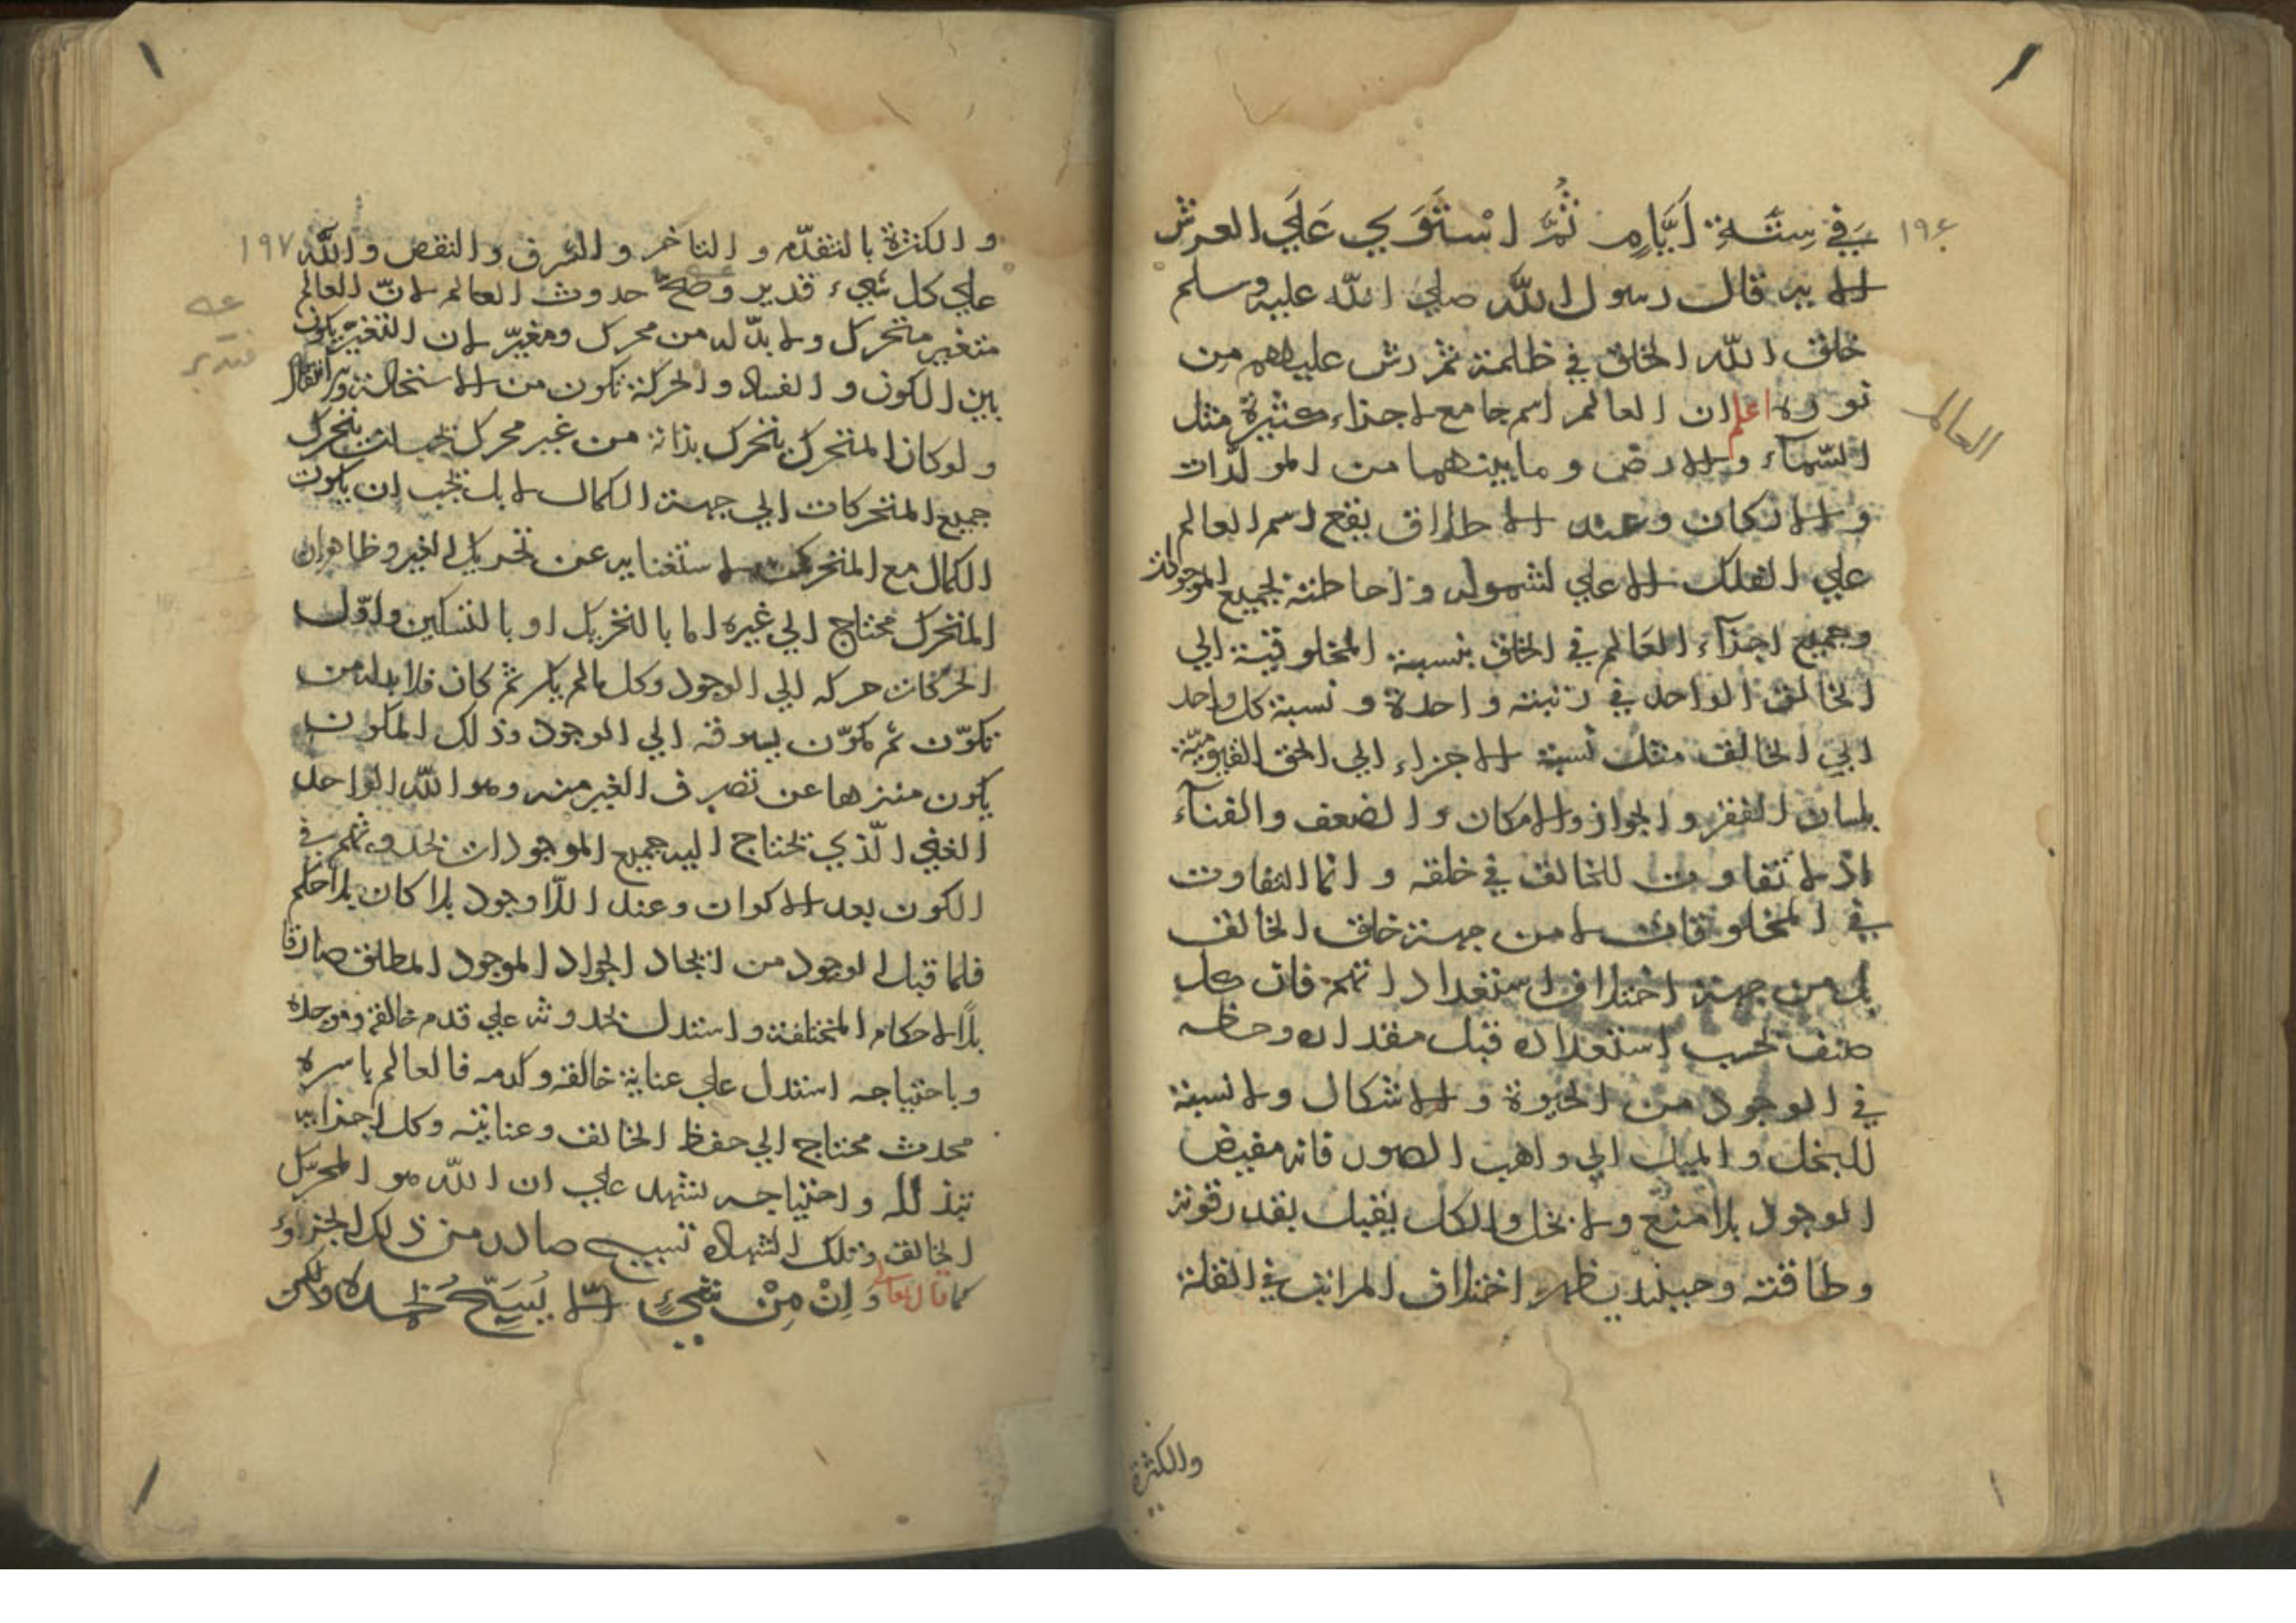 ١٩٦
في ستة أيام ثُمَّ اسْتَوَي عَلَي العرش
الاية قال رسول الله صلي الله عليه وسلم
خلق الله الخلق في ظلمة ثم رش عليهم من
نوره اعلم ان العالم اسم جامع لاجزاء كثيرة مثل
العالم
السّماء والارض وما بينهما من المولّدات
والاركان وعند الاطلاق يقع اسم العالم
علي الفلك الاعلي لشموله واحاطته لجميع الموجودات
وجميع اجزاء العالم في الخلق بنسبة المخلوقية الي
الخالق الواحد في رتبته واحدة ونسبة كل واحد
الي الخالق مثل نسبة الاجزاء الي الحق القيومية
بلسان الفقر والجواز والامكان والضعف والفناء
اذ لا تفاوت للخالق في خلقه وانما التفاوت
في المخلوقات لا من جهة خلق الخالق
بل من جهة اختلاف استعداداتهم فان كل
صنف بحسب استعداده قبل مقداره وحظه
في الوجود من الحيوة والاشكال ولا نسبة
للبخل والميل الي واهب الصور فانه مفيض
الوجود بلا منع ولا بخل والكل يقبل بقدر قوته
وطاقته وحينئذ يظهر اختلاف المراتب في القلة
والكثرة
١٩٧
والكثرة بالتقدّم والتاخر والشرف والنقص والله
علي كل شيء قدير وصحّ حدوث العالم لانّ العالم
متغير متحرك ولا بدّ له من محرك ومغيّر لان التغيّر يكون
بين الكون والفساد والحركة تكون من الاستحالة والانتقال
ولو كان المتحرك يتحرك بذاته من غير محرك يتحرك
جميع المتحركات الي جهة الكمال لا بل يجب ان يكون
الكمال مع المتحرك لاستغنايه عن تحريك الغير وظاهر ان
المتحرك محتاج الي غيره اما بالتحريك او بالتسكين واوّل
الحركات حركه الي الوجود وكل مالم يكن ثم كان فلا بدله من
تكوّن ثم مكوّن يسوقه الي الوجود وذلك المكون
يكون منزها عن تصرف الغير منه وهو الله الواحد
الغني الّذي تحتاج اليه جميع الموجودات لحدوثهم في
الكون بعد الاكوان وعند اللّاوجود بلا كان بلا حكم
فلما قبل الوجود من ايجاد الجواد الموجود المطلق صار
بلا الاحكام المختلفة واستدل بحدوثه علي قدم خالقه وموجده
وباحتياجه استدل علي عناية خالقه وكرمه فالعالم باسره
محدث محتاج الي حفظ الخالق وعنايته وكل اجزايه
بتذلله واحتياجه تشهد علي ان الله هو المحرّك
الخالق وتلك الشهادة تسبيح صادر من ذلك الجزء
كما قال تعالي وَاِنْ مِنْ شَيءٍ اِلّا يُسَبِّحُ بحمده ولكن